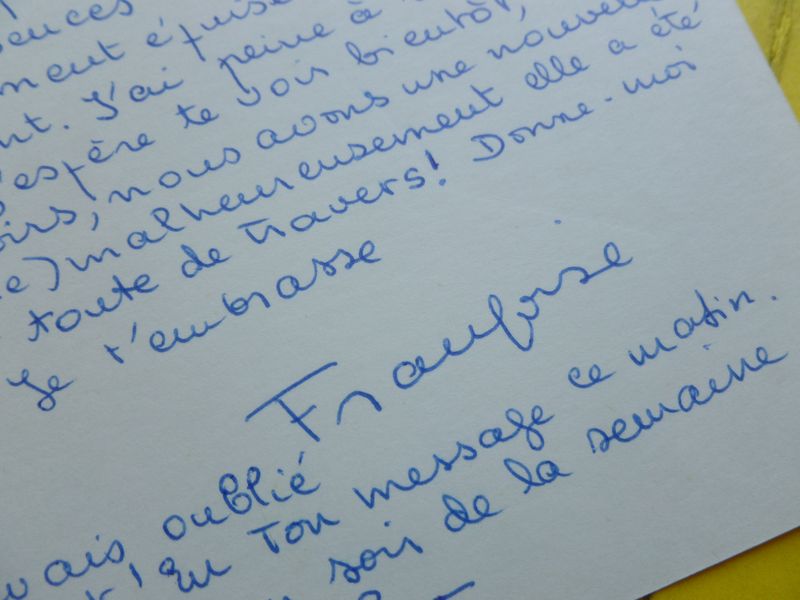 ment épuise
nt. J'ai peine à
espère te vois bientôt,
oirs, nous avons une nouvelle
e) malheureusement elle a été
toute de travers! Donne-moi
Je t'embrasse
Françoise
vais oublié
eu ton message ce matin.
soir de la semaine